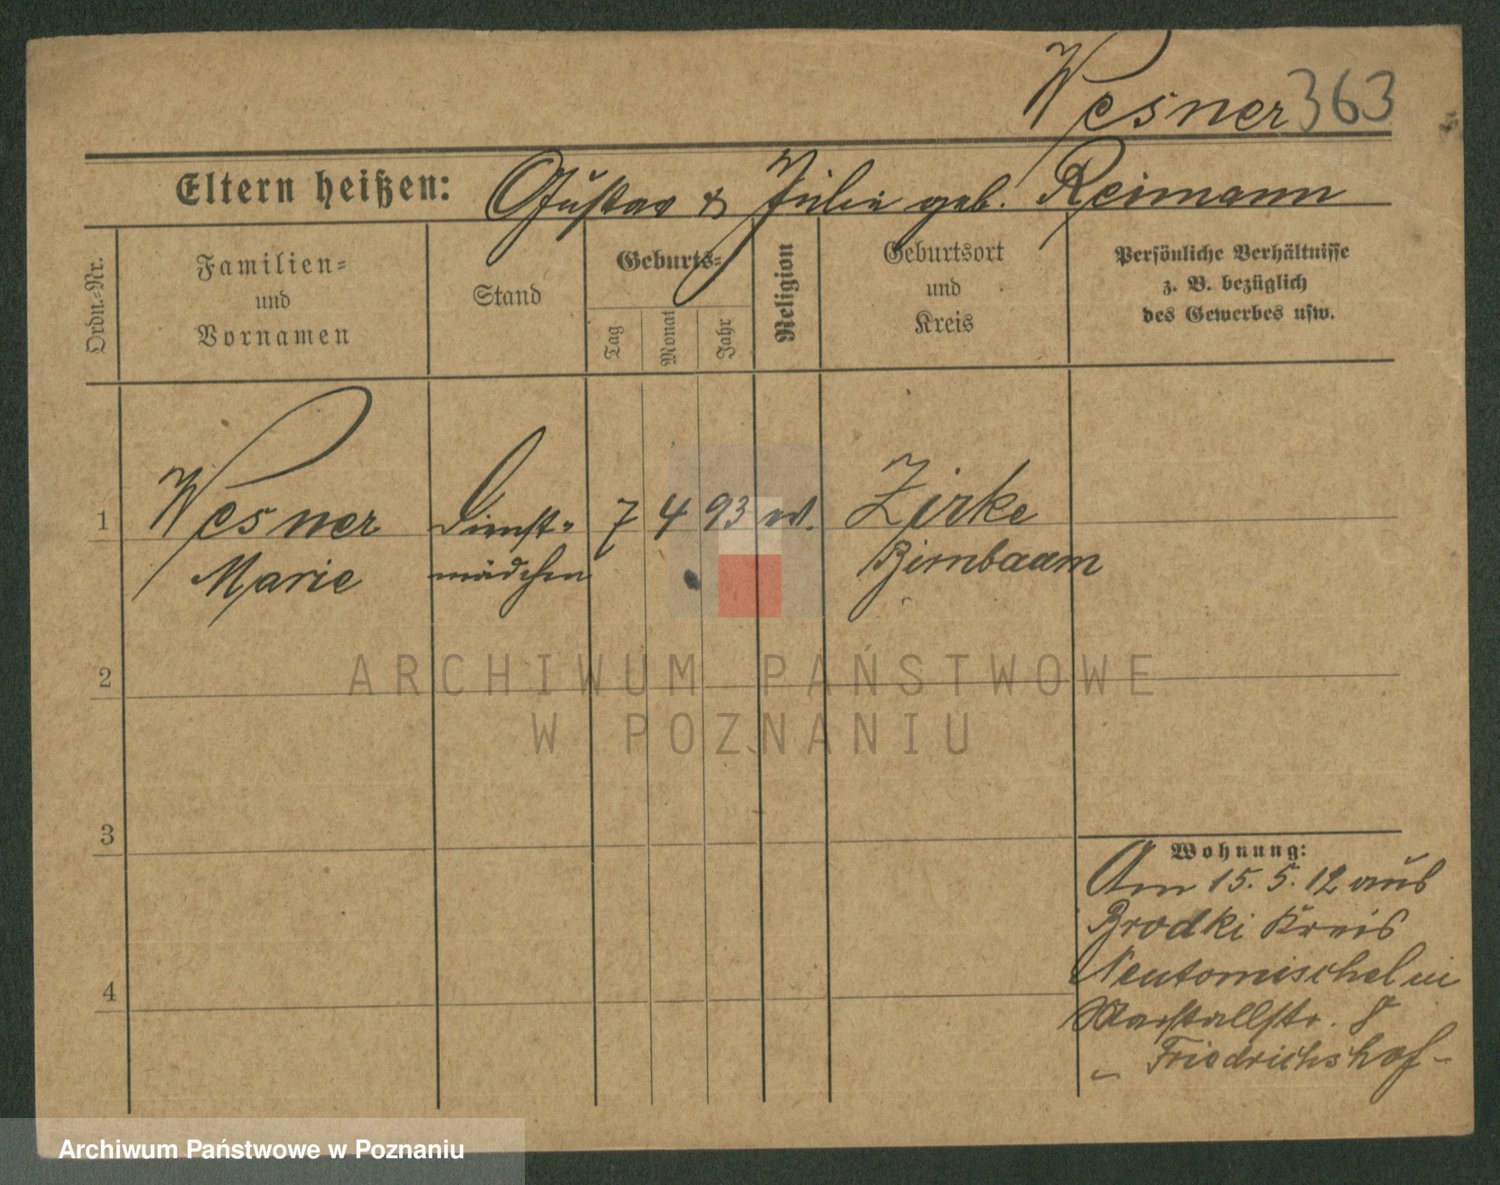 Wesner 363
Eltern heißen: Gustav & Julie geb. Reimann
Ordn.-Nr.
Familien-
und
Vornamen
Stand
Geburts-
Tag
Monat
Jahr
Religion
Geburtsort
und
Kreis
Persönliche Verhältnisse
z. B. bezüglich
des Gewerbes usw.
1 Wesner Dienst- 7 4 93 ev. Zirke
Marie mädchen Birnbaum
2
3
4
Wohnung:
Am 15. 5. 12 aus
Brodki Kreis
Neutomischel in
Marstallstr. 8
„ Friedrichshof -
ARCHIWUM PAŃSTWOWE
W POZNANIU
Archiwum Państwowe w Poznaniu